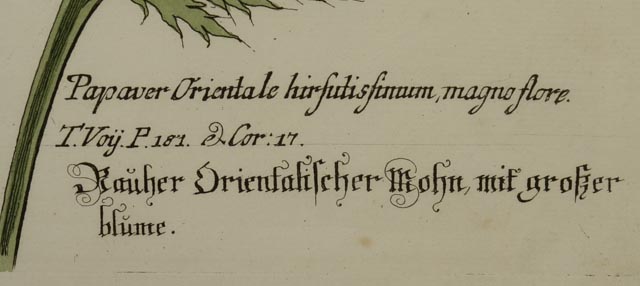 Papaver Orientale hirsutissimum, magno flore.
T. Voÿ. P. 181. & Cor: 17.
Rauher Orientalischer Mohn, mit großer
blume.